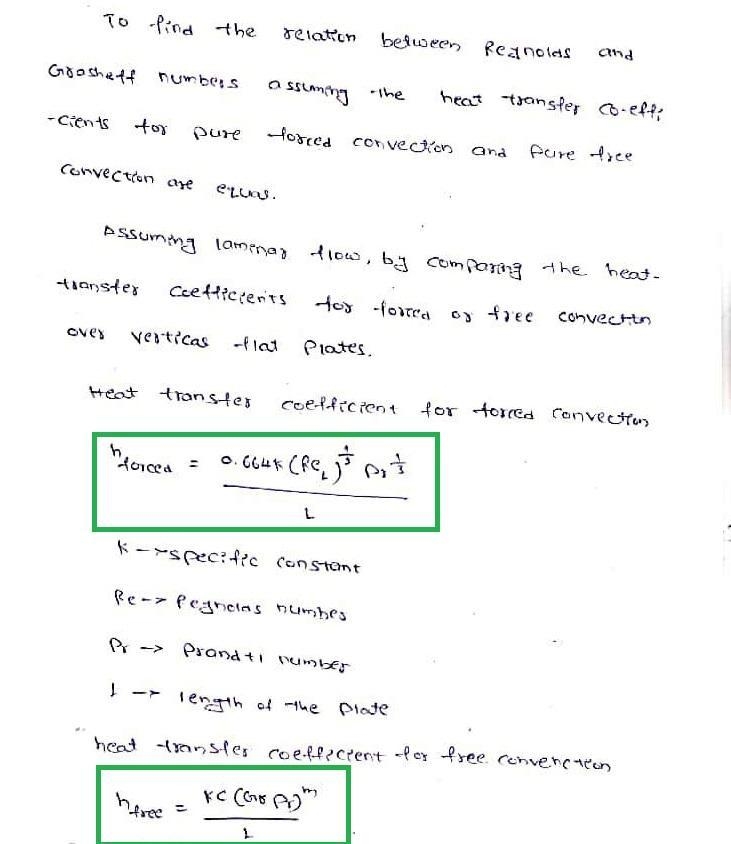 To find the relation between Reynolds and
Grosheff numbers assuming the heat transfer co-effi
-cients for pure forced convection and pure free
convection are equal.
Assuming laminar flow, by comparing the heat-
transfer coefficients for forced or free convection
over vertical flat plates.
Heat transfer coefficient for forced convection
h forced = 0.664k (Re_L)^1/3 Pr^1/3 / L
K -> specific constant
Re -> Reynolds number
Pr -> Prandtl number
l -> length of the plate
heat transfer coefficient for free convenction
h free = KC (Gr Pr)^m / L